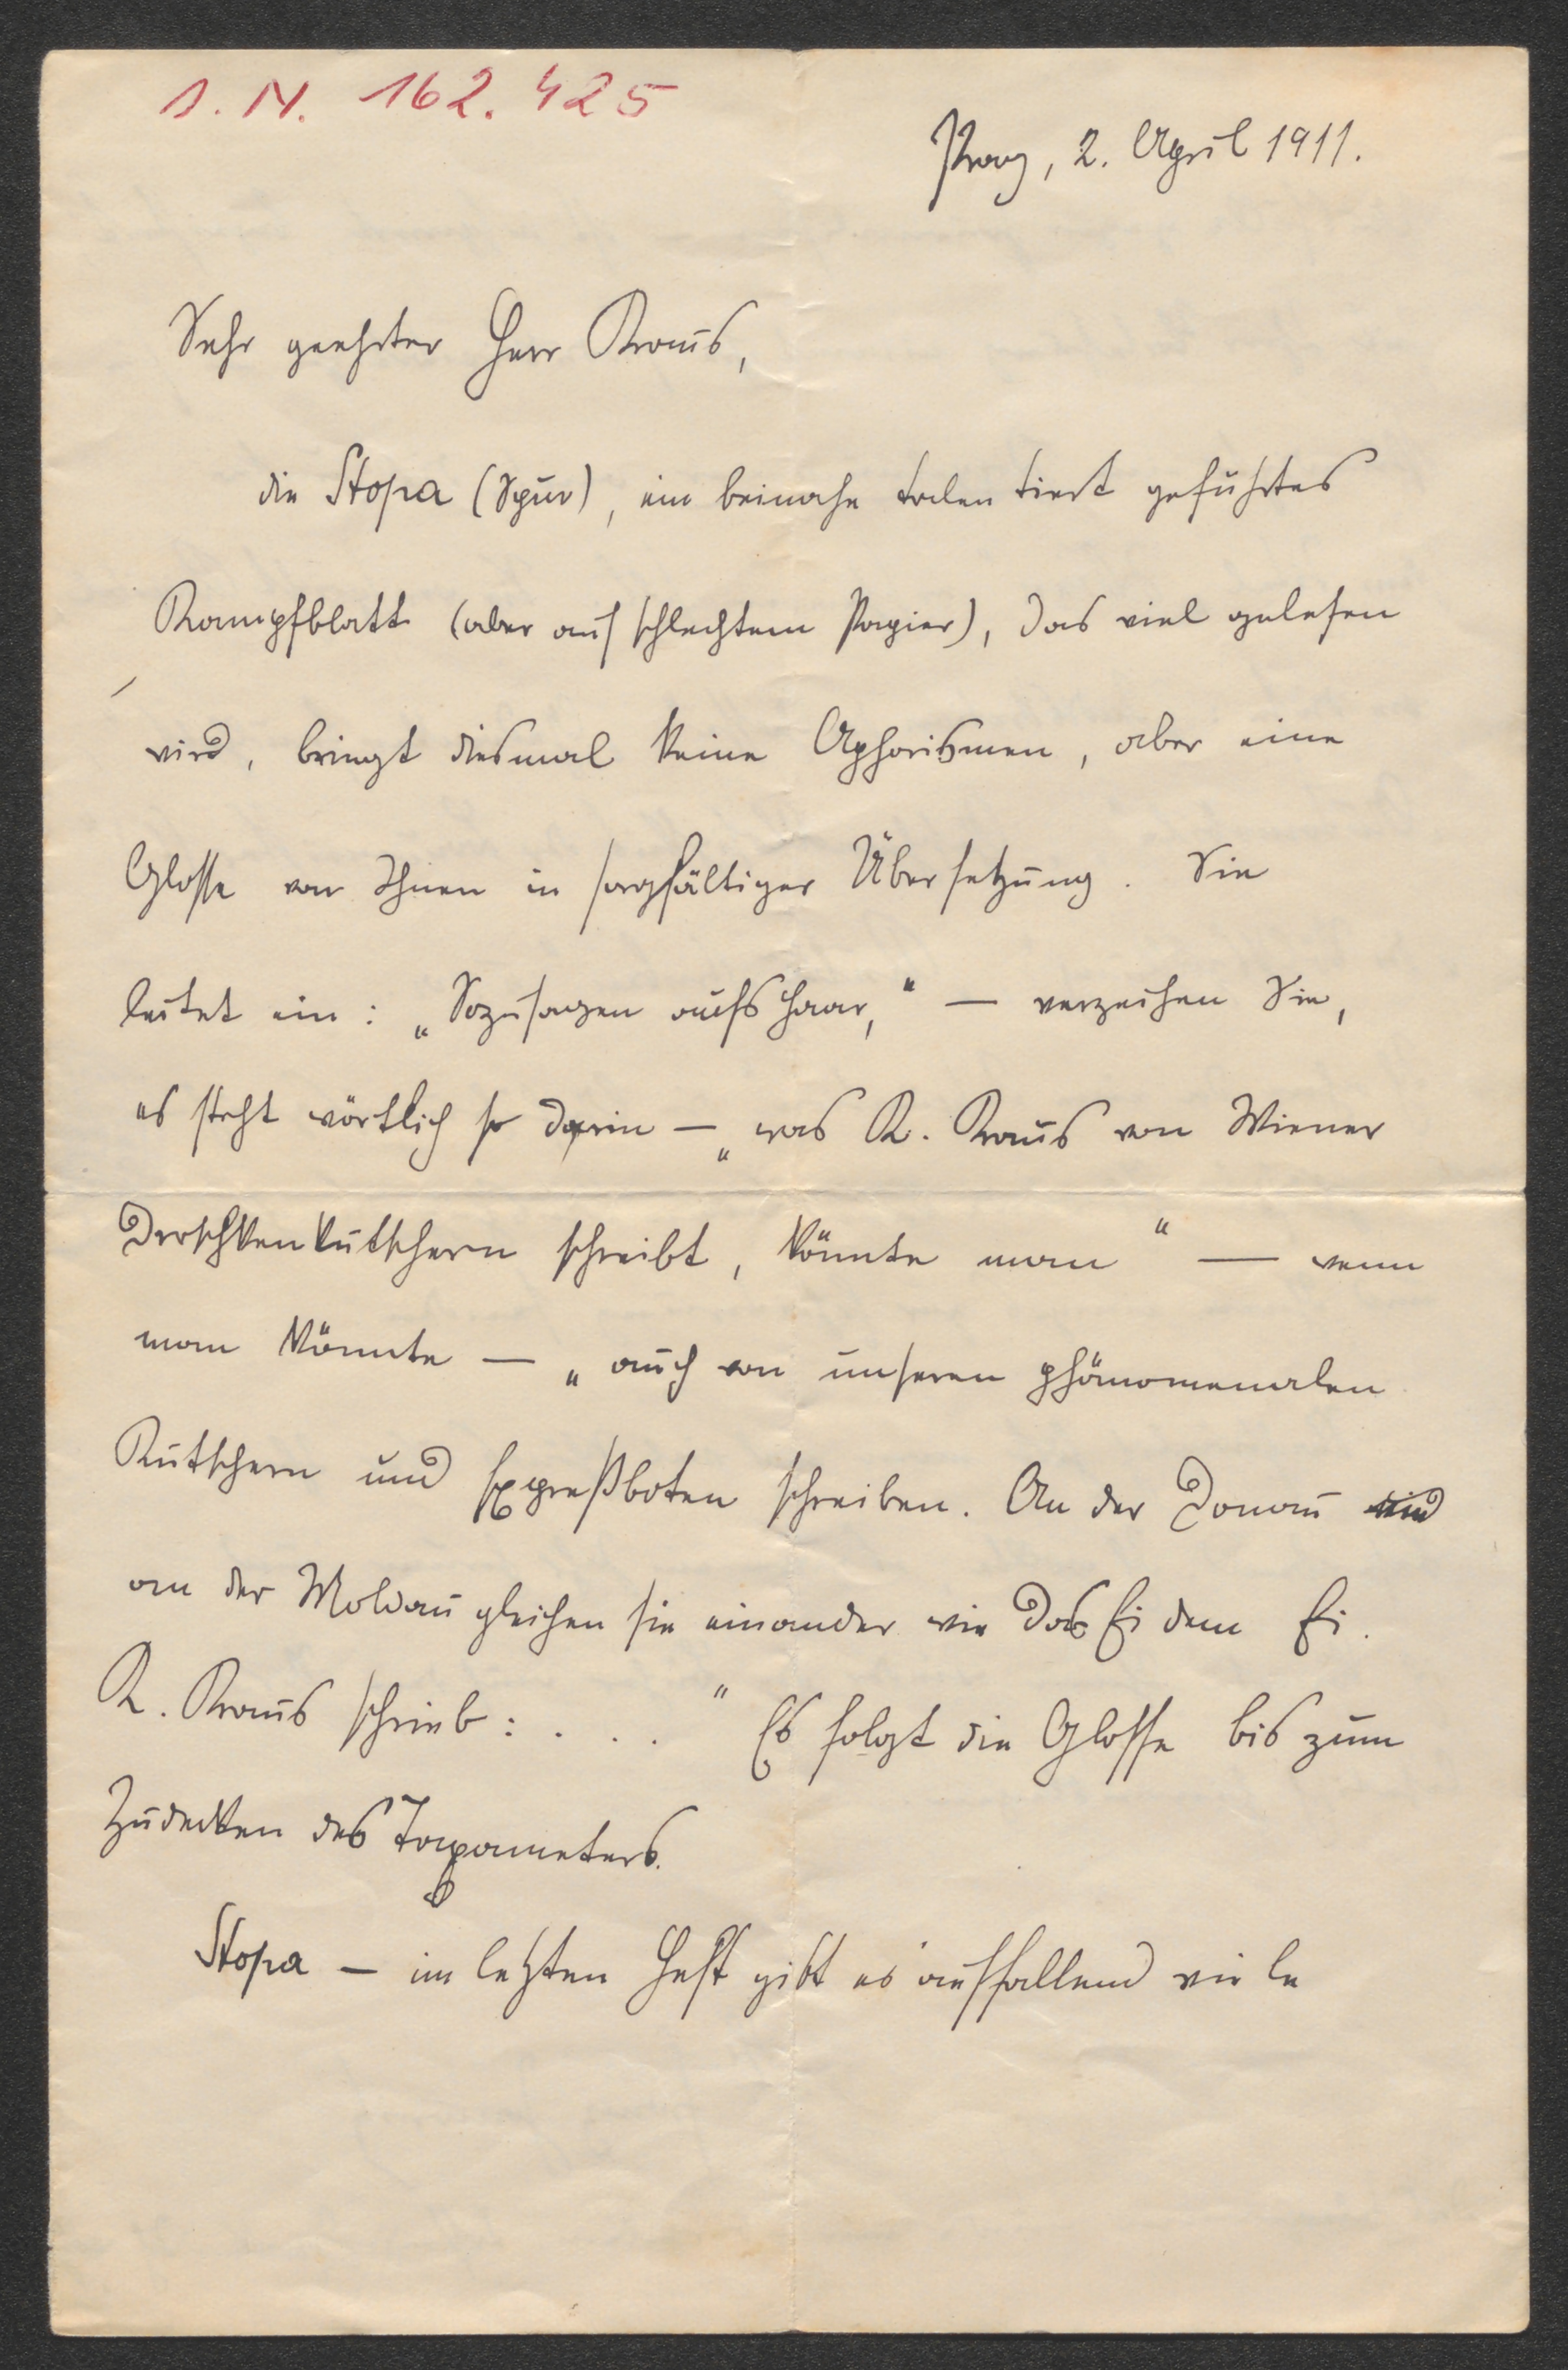 I. N. 162.425
Prag, 2. April 1911.
Sehr geehrter Herr Kraus,
die Stopa (Spur), ein beinahe talentiert geführtes
Kampfblatt (aber auf schlechtem Papier), das viel gelesen
wird, bringt diesmal keine Aphorismen, aber eine
Glosse von Ihnen in sorgfältiger Übersetzung. Sie
leitet ein: „Sozusagen aufs Haar,“ — verzeihen Sie,
es steht wörtlich so darin — „was K. Kraus von Wiener
Droschkenkutschern schreibt, könnte man“ — wenn
man könnte — „auch von unseren phänomenalen
Kutschern und Expreßboten schreiben. An der Donau und
an der Moldau gleichen sie einander wie das Ei dem Ei.
K. Kraus schrieb: . . .“ Es folgt die Glosse bis zum
Zudecken des Taxameters.
Stopa — im letzten Heft gibt es auffallend viele